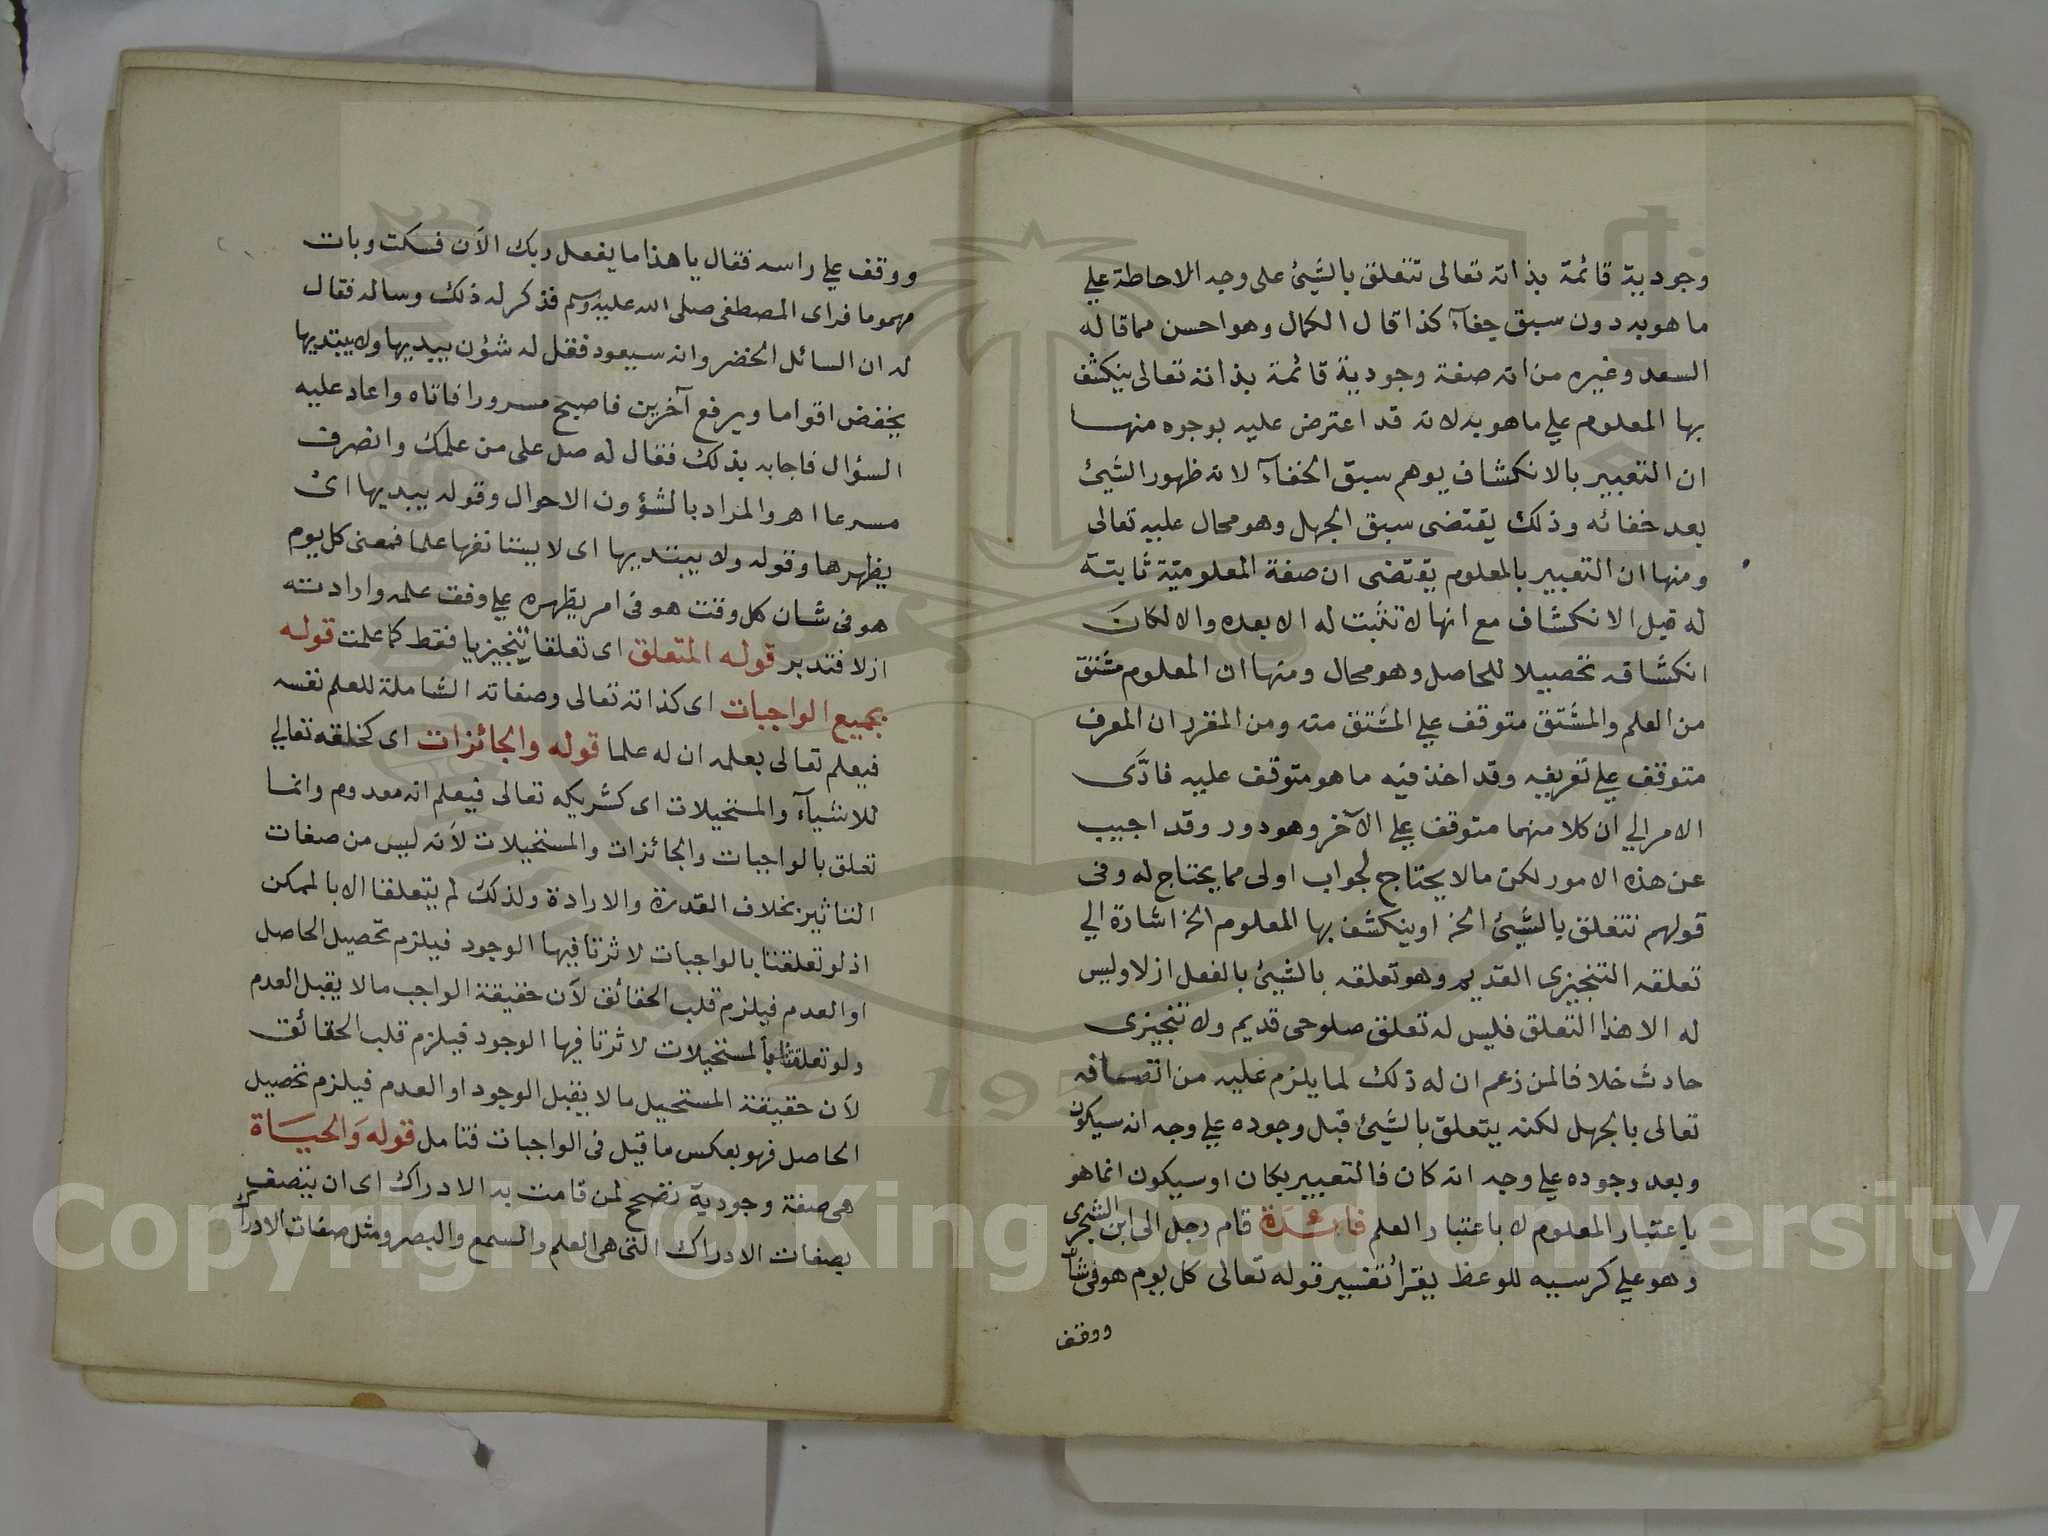 وجودية قائمة بذاته تعالى تتعلق بالشيئ على وجه الاحاطة علي
ما هو به دون سبق خفآء كذا قال الكمال وهو احسن مما قاله
السعد وغيره من انه صفة وجودية قائمة بذاته تعالى ينكشف
بها المعلوم علي ما هو به لانه قد اعترض عليه بوجوه منها
ان التعبير بالانكشاف يوهم سبق الخفآء لانه ظهور الشيئ
بعد خفائه وذلك يقتضى سبق الجهل وهو محال عليه تعالى
ومنها ان التعبير بالمعلوم يقتضى ان صفة المعلوميّة ثابتة
له قبل الانكشاف مع انها لا تثبت له الا بعده والا لكان
انكشافه تحصيلا للحاصل وهو محال ومنها ان المعلوم مشتق
من العلم والمشتق متوقف علي المشتق منه ومن المقرر ان المعرف
متوقف علي تعريفه وقد اخذ فيه ما هو متوقف عليه فادّى
الامر الي ان كلا منهما متوقف علي الآخر وهو دور وقد اجيب
عن هذه الامور لكن ما لا يحتاج لجواب اولى مما يحتاج له وفى
قولهم تتعلق بالشيئ الخ او ينكشف بها المعلوم الخ اشارة الي
تعلقه التنجيزى القديم وهو تعلقه بالشيئ بالفعل ازلا وليس
له الا هذا التعلق فليس له تعلق صلوحى قديم ولا تنجيزى
حادث خلافا لمن زعم ان له ذلك لما يلزم عليه من اتصافه
تعالى بالجهل لكنه يتعلق بالشيئ قبل وجوده علي وجه انه سيكون
وبعد وجوده علي وجه انه كان فالتعبير بكان او سيكون انما هو
باعتبار المعلوم لا باعتبار العلم فائدة قام رجل الى ابن الشجرى
وهو علي كرسيه للوعظ يقرأ تفسير قوله تعالى كل يوم هو فى شأن
ووقف
ووقف علي راسه فقال يا هذا ما يفعل ربك الآن فسكت وبات
مهموما فراى المصطفى صلى الله عليه وسلم فذكر له ذلك وساله فقال
له ان السائل الخضر وانه سيعود فقل له شؤن يبديها ولا يبتديها
يخفض اقواما ويرفع آخرين فاصبح مسرورا فاتاه واعاد عليه
السؤال فاجابه بذلك فقال له صل على من علمك وانصرف
مسرعا اهر والمراد بالشؤون الاحوال وقوله يبديها اى
يظهرها وقوله ولا يبتديها اى لا يستانفها علما فمعنى كل يوم
هو فى شان كل وقت هو فى امر يظهره علي وفق علمه وارادته
ازلا فتدبر قوله المتعلق اى تعلقا تنجيزيا فقط كما علمت قوله
بجميع الواجبات اى كذاته تعالى وصفاته الشاملة للعلم نفسه
فيعلم تعالى بعلمه ان له علما قوله والجائزات اى كخلقه تعالي
للاشيآء والمستحيلات اى كشريكه تعالى فيعلم انه معدوم وانما
تعلق بالواجبات والجائزات والمستحيلات لأنه ليس من صفات
التاثير بخلاف القدرة والارادة ولذلك لم يتعلقا الا بالممكن
اذ لو تعلقتا بالواجبات لاثرتا فيها الوجود فيلزم تحصيل الحاصل
او العدم فيلزم قلب الحقائق لأن حقيقة الواجب ما لا يقبل العدم
ولو تعلقتا بالمستحيلات لاثرتا فيها الوجود فيلزم قلب الحقائق
لأن حقيقة المستحيل ما لا يقبل الوجود او العدم فيلزم تحصيل
الحاصل فهو بعكس ما قيل فى الواجبات فتامل قوله والحياة
هى صفة وجودية تصحح لمن قامت به الادراك اى ان يتصف
بصفات الادراك التى هى العلم والسمع والبصر ومثل صفات الادراك
Copyright © King Saud University
1957